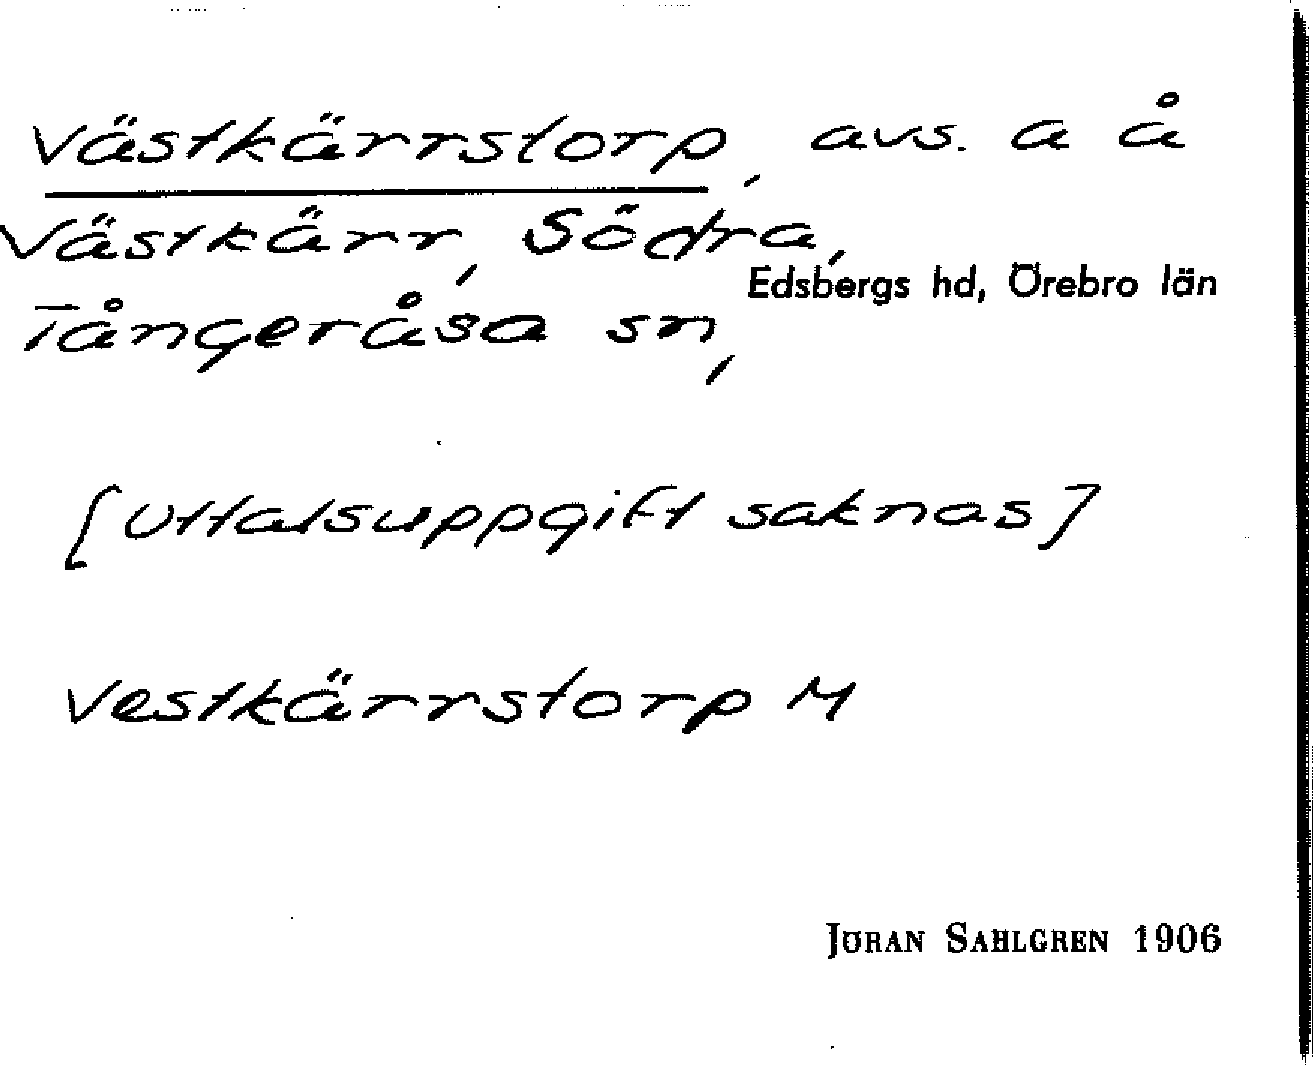 Västkärrstorp, avs. a å
Västkärr, Södra,
Edsbergs hd, Örebro län
Tångeråsa sn,
[Uttalsuppgift saknas]
Vestkärrstorp M
JÖRAN SAHLGREN 1906